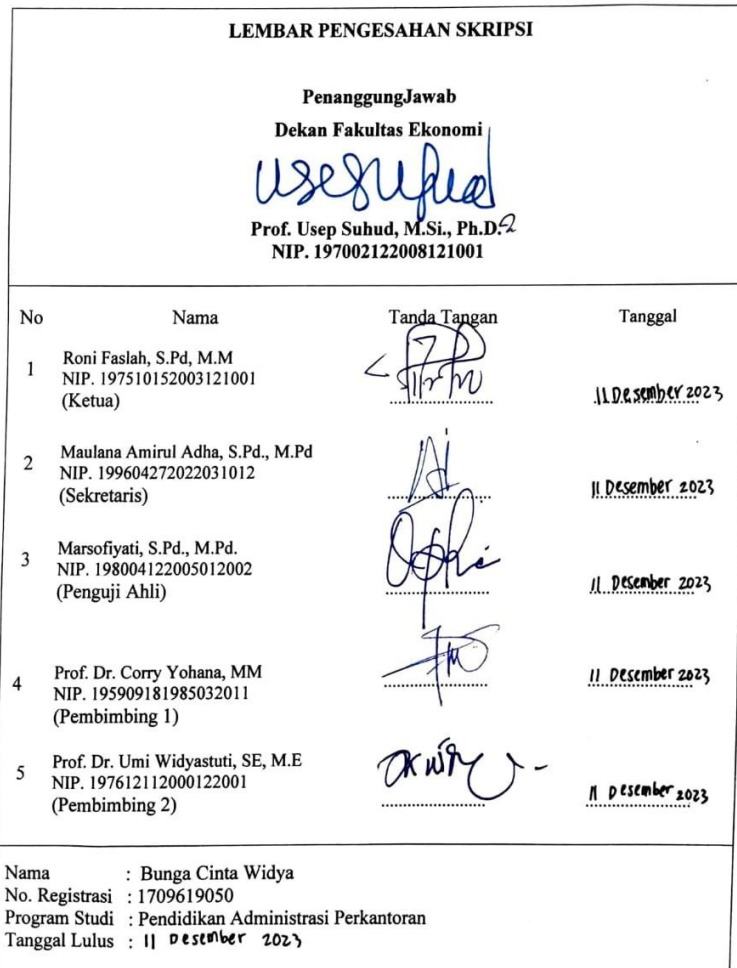 LEMBAR PENGESAHAN SKRIPSI
PenanggungJawab
Dekan Fakultas Ekonomi
Prof. Usep Suhud, M.Si., Ph.D.
NIP. 197002122008121001
No Nama Tanda Tangan Tanggal
1 Roni Faslah, S.Pd, M.M
NIP. 197510152003121001
(Ketua)
11 Desember 2023
2 Maulana Amirul Adha, S.Pd., M.Pd
NIP. 199604272022031012
(Sekretaris)
11 Desember 2023
3 Marsofiyati, S.Pd., M.Pd.
NIP. 198004122005012002
(Penguji Ahli)
11 Desember 2023
4 Prof. Dr. Corry Yohana, MM
NIP. 195909181985032011
(Pembimbing 1)
11 Desember 2023
5 Prof. Dr. Umi Widyastuti, SE, M.E
NIP. 197612112000122001
(Pembimbing 2)
11 Desember 2023
Nama : Bunga Cinta Widya
No. Registrasi : 1709619050
Program Studi : Pendidikan Administrasi Perkantoran
Tanggal Lulus : 11 Desember 2023